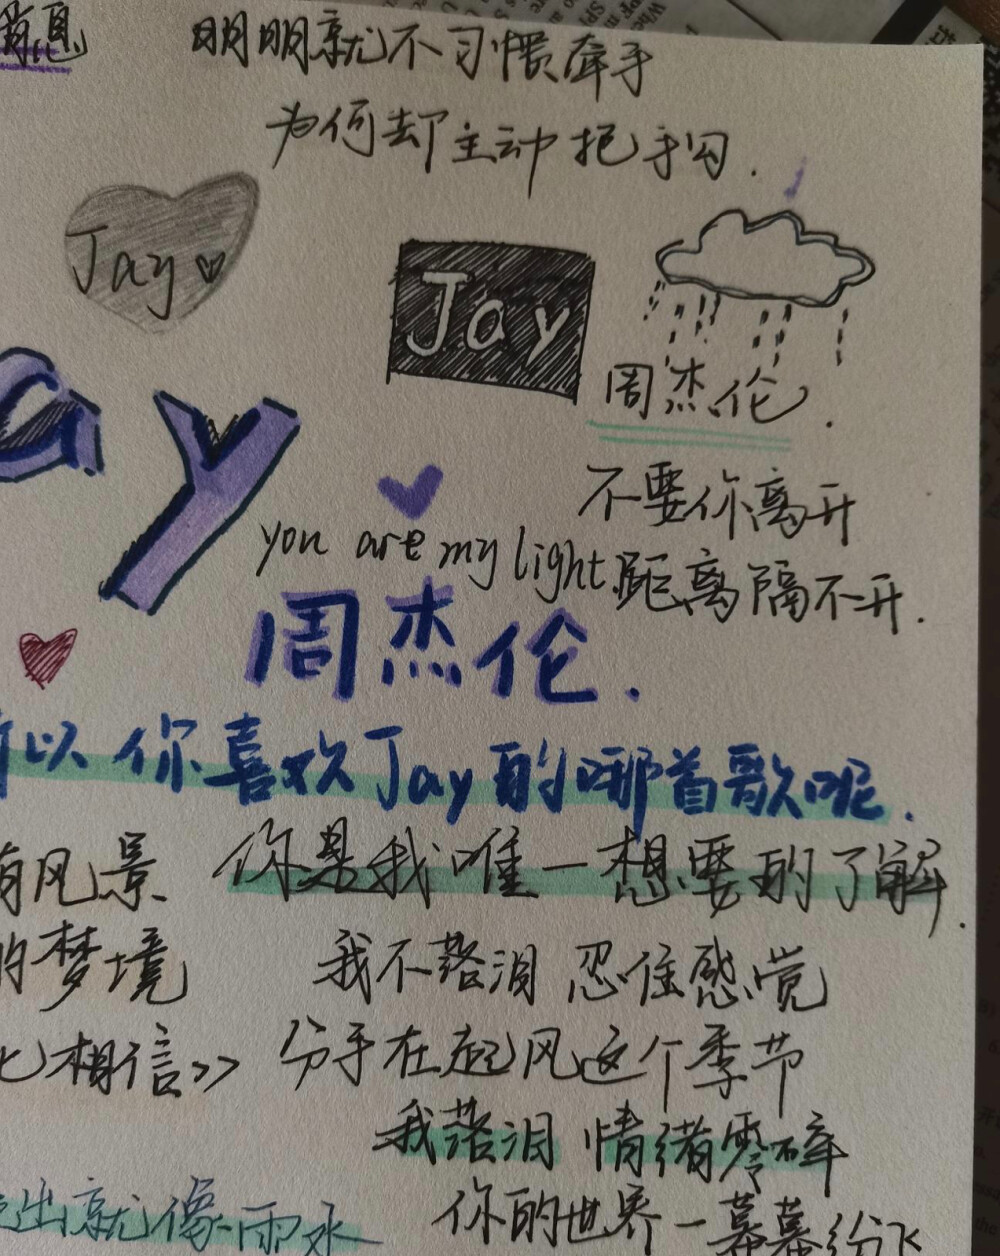 消息
明明就不习惯牵手
为何却主动把手勾.
Jay
Jay
周杰伦.
ay
不要你离开
you are my light.
距离隔不开.
周杰伦.
所以你喜欢Jay的哪首歌呢.
有风景
你是我唯一想要的了解.
的梦境
我不落泪 忍住感觉
相信》
分手在起风这个季节
我落泪 情绪零碎
出就像雨水
你的世界一幕幕纷飞